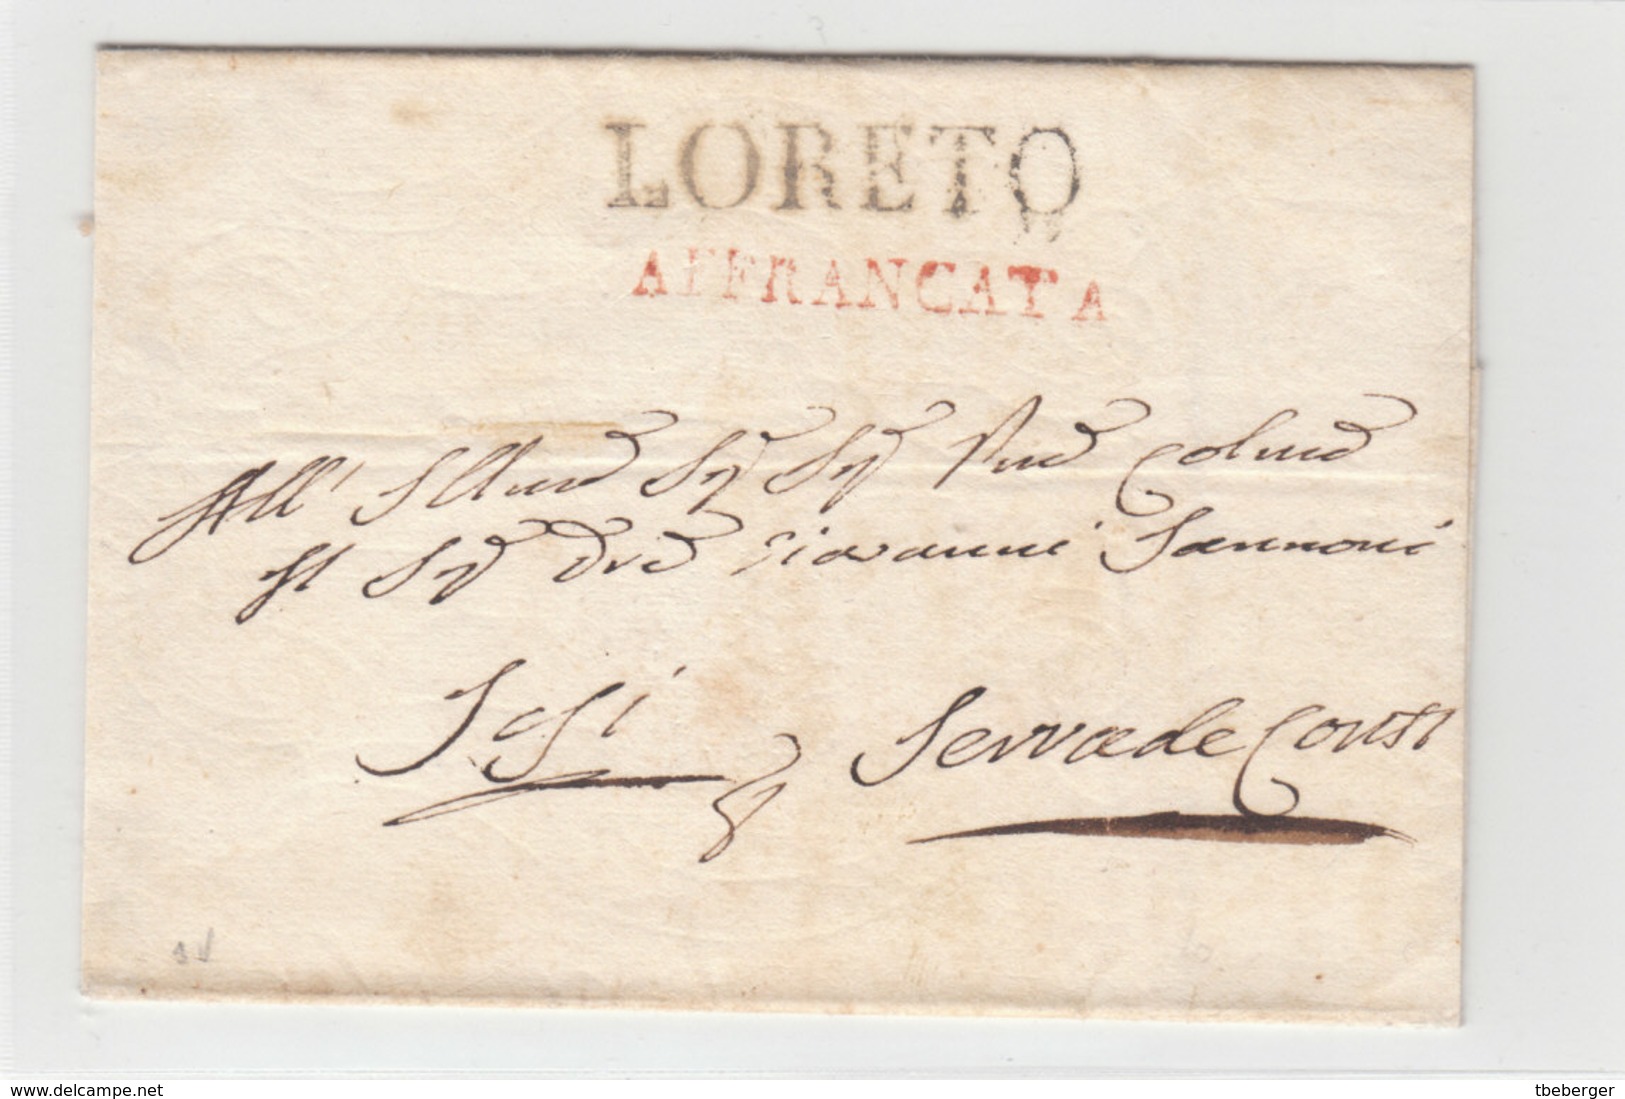 LORETO
AFFRANCATA
All' Illmo Sig Sig Pne Colmo
Il Sig Dre Giovanni Sannoni
Jesi Serra de Conti
www.delcampe.net
tbeberger